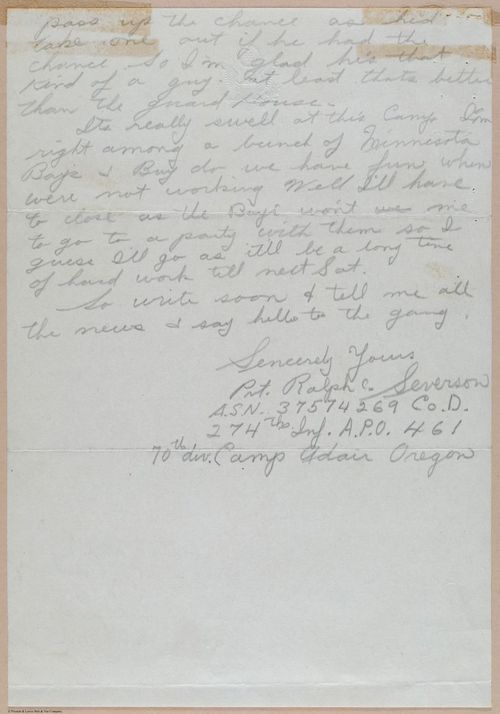 pass up the chance as he'd
take one out if he had the
chance. So I'm glad he's that
kind of a guy. at least thats better
than the guard House.
Its really swell at this Camp. I'm
right among a bunch of Minnesota
Boys & Boy do we have fun when
were not working Well I'll have
to close as the Boys won't me
to go to a party with them so I
guess I'll go as itll be a long time
of hard work till next Sat.
So write soon & tell me all
the news & say hello to the gang.
Sencerely Yours
Pvt. Ralph C. Severson
A.S.N. 37574269 Co. D.
274th Inf. A.P.O. 461
70th div. Camp Adair Oregon